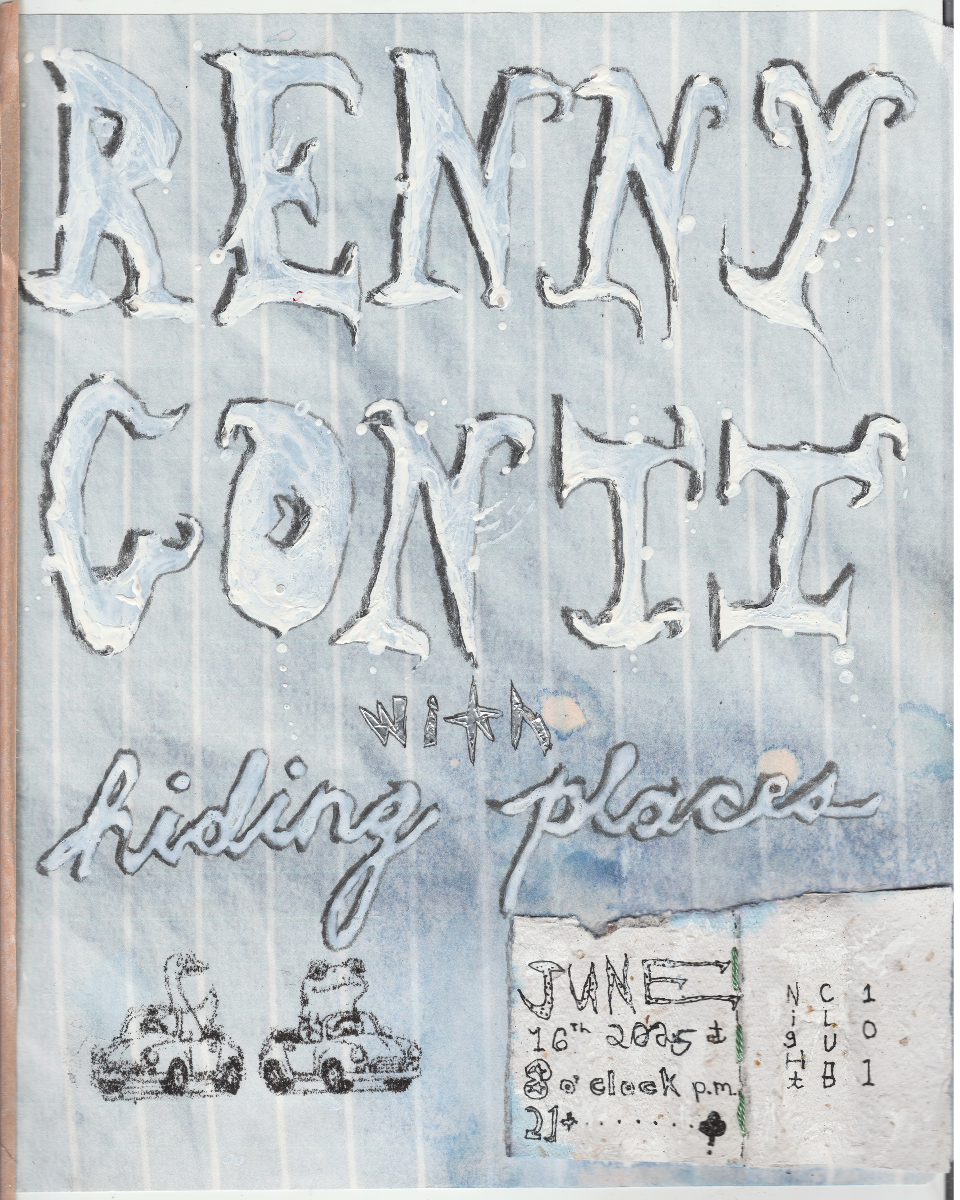 RENNY
CONTI
with
hiding places
JUNE
16th 2025 @
8 o'clock p.m.
21+ . . . . . . .
Night
CLUB
101